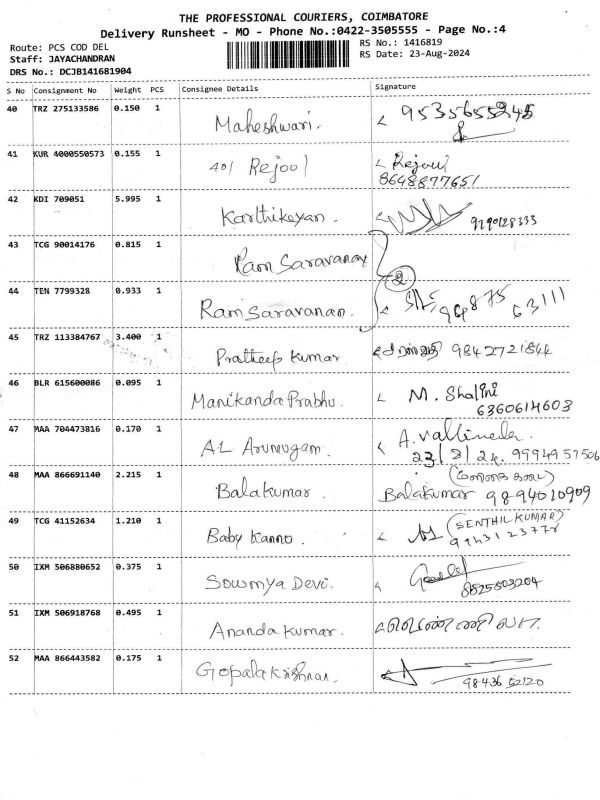 THE PROFESSIONAL COURIERS, COIMBATORE
Delivery Runsheet - MO - Phone No.:0422-3505555 - Page No.:4
Route: PCS COD DEL
Staff: JAYACHANDRAN
DRS No.: DCJB141681904
RS No.: 1416819
RS Date: 23-Aug-2024
S No Consignment No Weight PCS Consignee Details Signature
40 TRZ 275133586 0.150 1 Maheshwari.
41 KUR 4000550573 0.155 1 401 Rejoul Rejoul
8648877651
42 KDI 709051 5.995 1 Karthikeyan. 9790128333
43 TCG 90014176 0.815 1 Ram Saravanan
2
44 TEN 7799328 0.933 1 Ram Saravanan. 94875 63111
45 TRZ 113384767 3.400 1 Pratheep Kumar 9842721844
46 BLR 615600086 0.095 1 Manikanda Prabhu. M. Shalini
6360614603
47 MAA 704473816 0.170 1 AL Arumugam. A.
23/8/24. 9994957506
48 MAA 866691140 2.215 1 Balakumar. Balakumar 9894010909
49 TCG 41152634 1.210 1 Baby Kanno. (SENTHIL KUMAR)
50 IXM 506880652 0.375 1 Sowmya Devi.
8525803204
51 IXM 506918768 0.495 1 Ananda Kumar.
52 MAA 866443582 0.175 1 Gopalakrishnan.
98436 52120